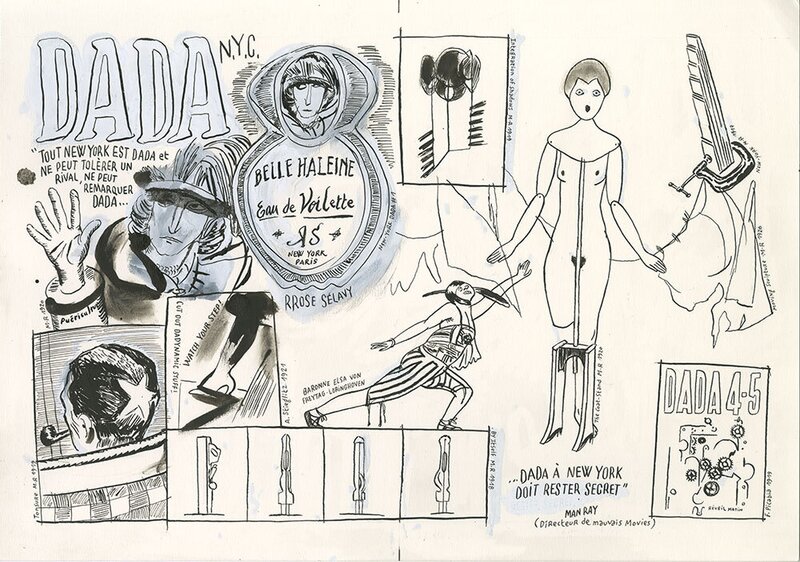 DADA N.Y.C.
"TOUT NEW YORK EST DADA et
NE PEUT TOLÉRER UN
RIVAL, NE PEUT
REMARQUER
DADA...
BELLE HALEINE
Eau de Voilette
RS
NEW YORK
PARIS
RROSE SÉLAVY
Integration of shadows M.R. 1919
M.R. 1920
PUÉRICULTURE
WATCH YOUR STEP!
CUT OUT DADYNAMIC STUFF!
A. Stieglitz 1921
BARONNE ELSA VON
FREYTAG-LORINGHOVEN
The Coat-Stand M.R. 1920
Tonsure M.R. 1919
By itself M.R. 1918
...DADA À NEW YORK
DOIT RESTER SECRET"
MAN RAY
(Directeur de mauvais Movies)
DADA 4-5
RÉVEIL MATIN
F. Picabia 1919